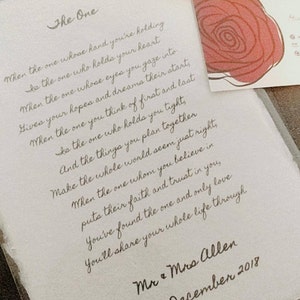 The One
When the one whose hand you're holding
Is the one who holds your heart
When the one whose eyes you gaze into
Gives your hopes and dreams their start,
When the one you think of first and last
Is the one who holds you tight,
And the things you plan together
Make the whole world seem just right,
When the one whom you believe in
puts their faith and trust in you,
You've found the one and only love
You'll share your whole life through
Mr & Mrs Allen
December 2018